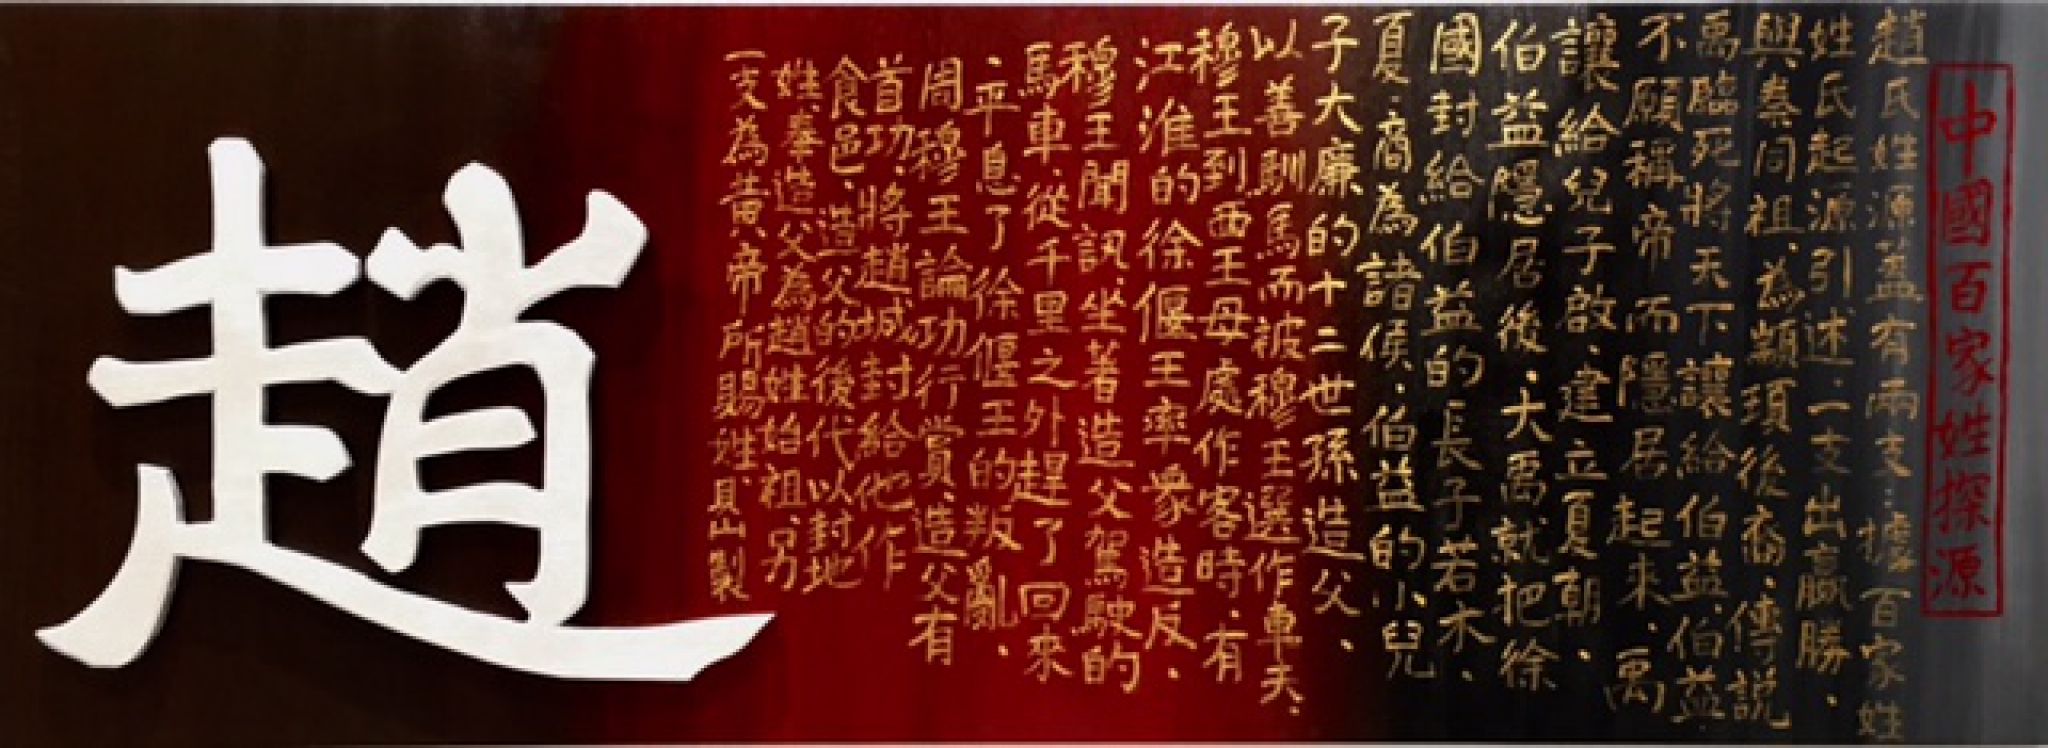 中國百家姓探源
趙氏姓源蓋有兩支：據百家姓
姓氏起源引述：一支出嬴勝、
與秦同祖、為顓頊後裔、傳說
禹臨死將天下讓給伯益、伯益
不願稱帝而隱居起來、禹
讓給兒子啟、建立夏朝、
伯益隱居後、大禹就把徐
國封給伯益的長子若木、
夏、商為諸侯、伯益的小兒
子大廉的十二世孫造父、
以善馴馬而被穆王選作車夫、
穆王到西王母處作客時、有
江淮的徐偃王率眾造反、
穆王聞訊、坐著造父駕駛的
馬車、從千里之外趕了回來
、平息了徐偃王的叛亂、
周穆王論功行賞、造父有
首功、將趙城封給他作
食邑、造父的後代以封地
姓、奉造父為趙姓始祖、另
一支為黃帝所賜姓、貝山製
趙